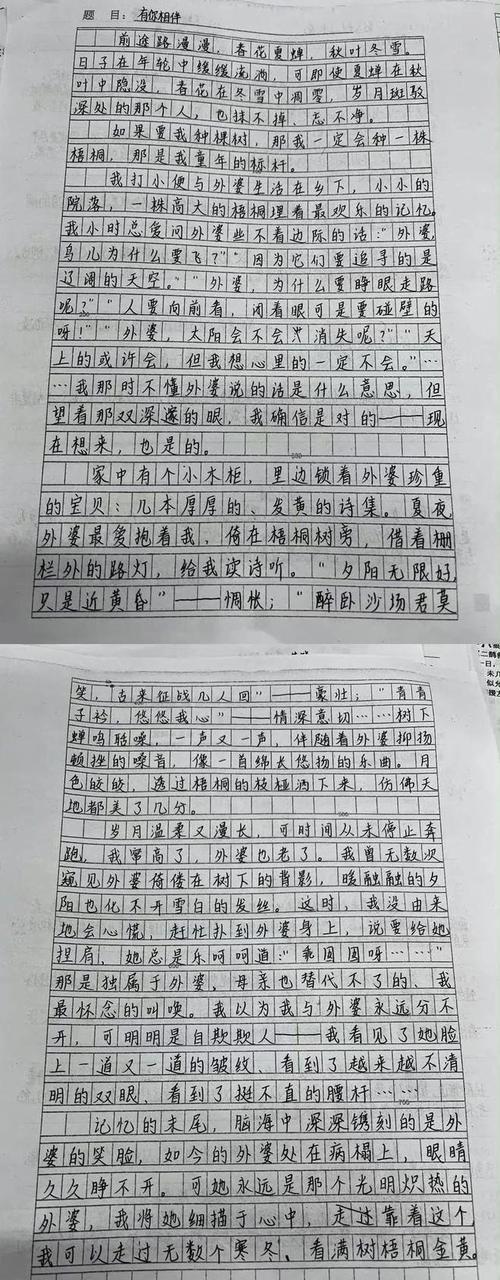 题 目：有你相伴
前途路漫漫，春花夏蝉，秋叶冬雪。
日子在年轮中缓缓流淌，可即使夏蝉在秋
叶中隐没，春花在冬雪中凋零，岁月斑驳
深处的那个人，也抹不掉、忘不净。
如果要我种棵树，那我一定会种一株
梧桐，那是我童年的标杆。
我打小便与外婆生活在乡下，小小的
院落，一株高大的梧桐埋着最欢乐的记忆。
我小时总爱问外婆些不着边际的话：“外婆，
鸟儿为什么要飞？”“因为它们要追寻的是
辽阔的天空。”“外婆，为什么要睁眼走路
呢？”“人要向前看，闭着眼可是要碰壁的
呀！”“外婆，太阳会不会消失呢？”“天
上的或许会，但我想心里的一定不会。”…
…我那时不懂外婆说的话是什么意思，但
望着那双深邃的眼，我确信是对的——现
在想来，也是的。
家中有个小木柜，里边锁着外婆珍重
的宝贝：几本厚厚的、发黄的诗集。夏夜，
外婆最爱抱着我，倚在梧桐树旁，借着栅
栏外的路灯，给我读诗听。“夕阳无限好，
只是近黄昏”——惆怅；“醉卧沙场君莫
笑，古来征战几人回”——豪壮；“青青
子衿，悠悠我心”——情深意切……树下
蝉鸣聒噪，一声又一声，伴随着外婆抑扬
顿挫的嗓音，像一首绵长悠扬的乐曲。月
色皎皎，透过梧桐的枝桠洒下来，仿佛天
地都美了几分。
岁月温柔又漫长，可时间从未停止奔
跑，我窜高了，外婆也老了。我曾无数次
窥见外婆倚偻在树下的背影，暖融融的夕
阳也化不开雪白的发丝。这时，我没由来
地会心慌，赶忙扑到外婆身上，说要给她
捏肩，她总是乐呵呵道：“乖囡囡呀……”
那是独属于外婆，母亲也替代不了的、我
最怀念的叫唤。我以为我与外婆永远分不
开，可明明是自欺欺人——我看见了她脸
上一道又一道的皱纹、看到了越来越不清
明的双眼、看到了挺不直的腰杆……
记忆的末尾，脑海中深深镌刻的是外
婆的笑脸，如今的外婆处在病榻上，眼睛
久久睁不开。可她永远是那个光明炽热的
外婆，我将她细描于心中，走过靠着这个
我可以走过无数个寒冬、看满树梧桐金黄。